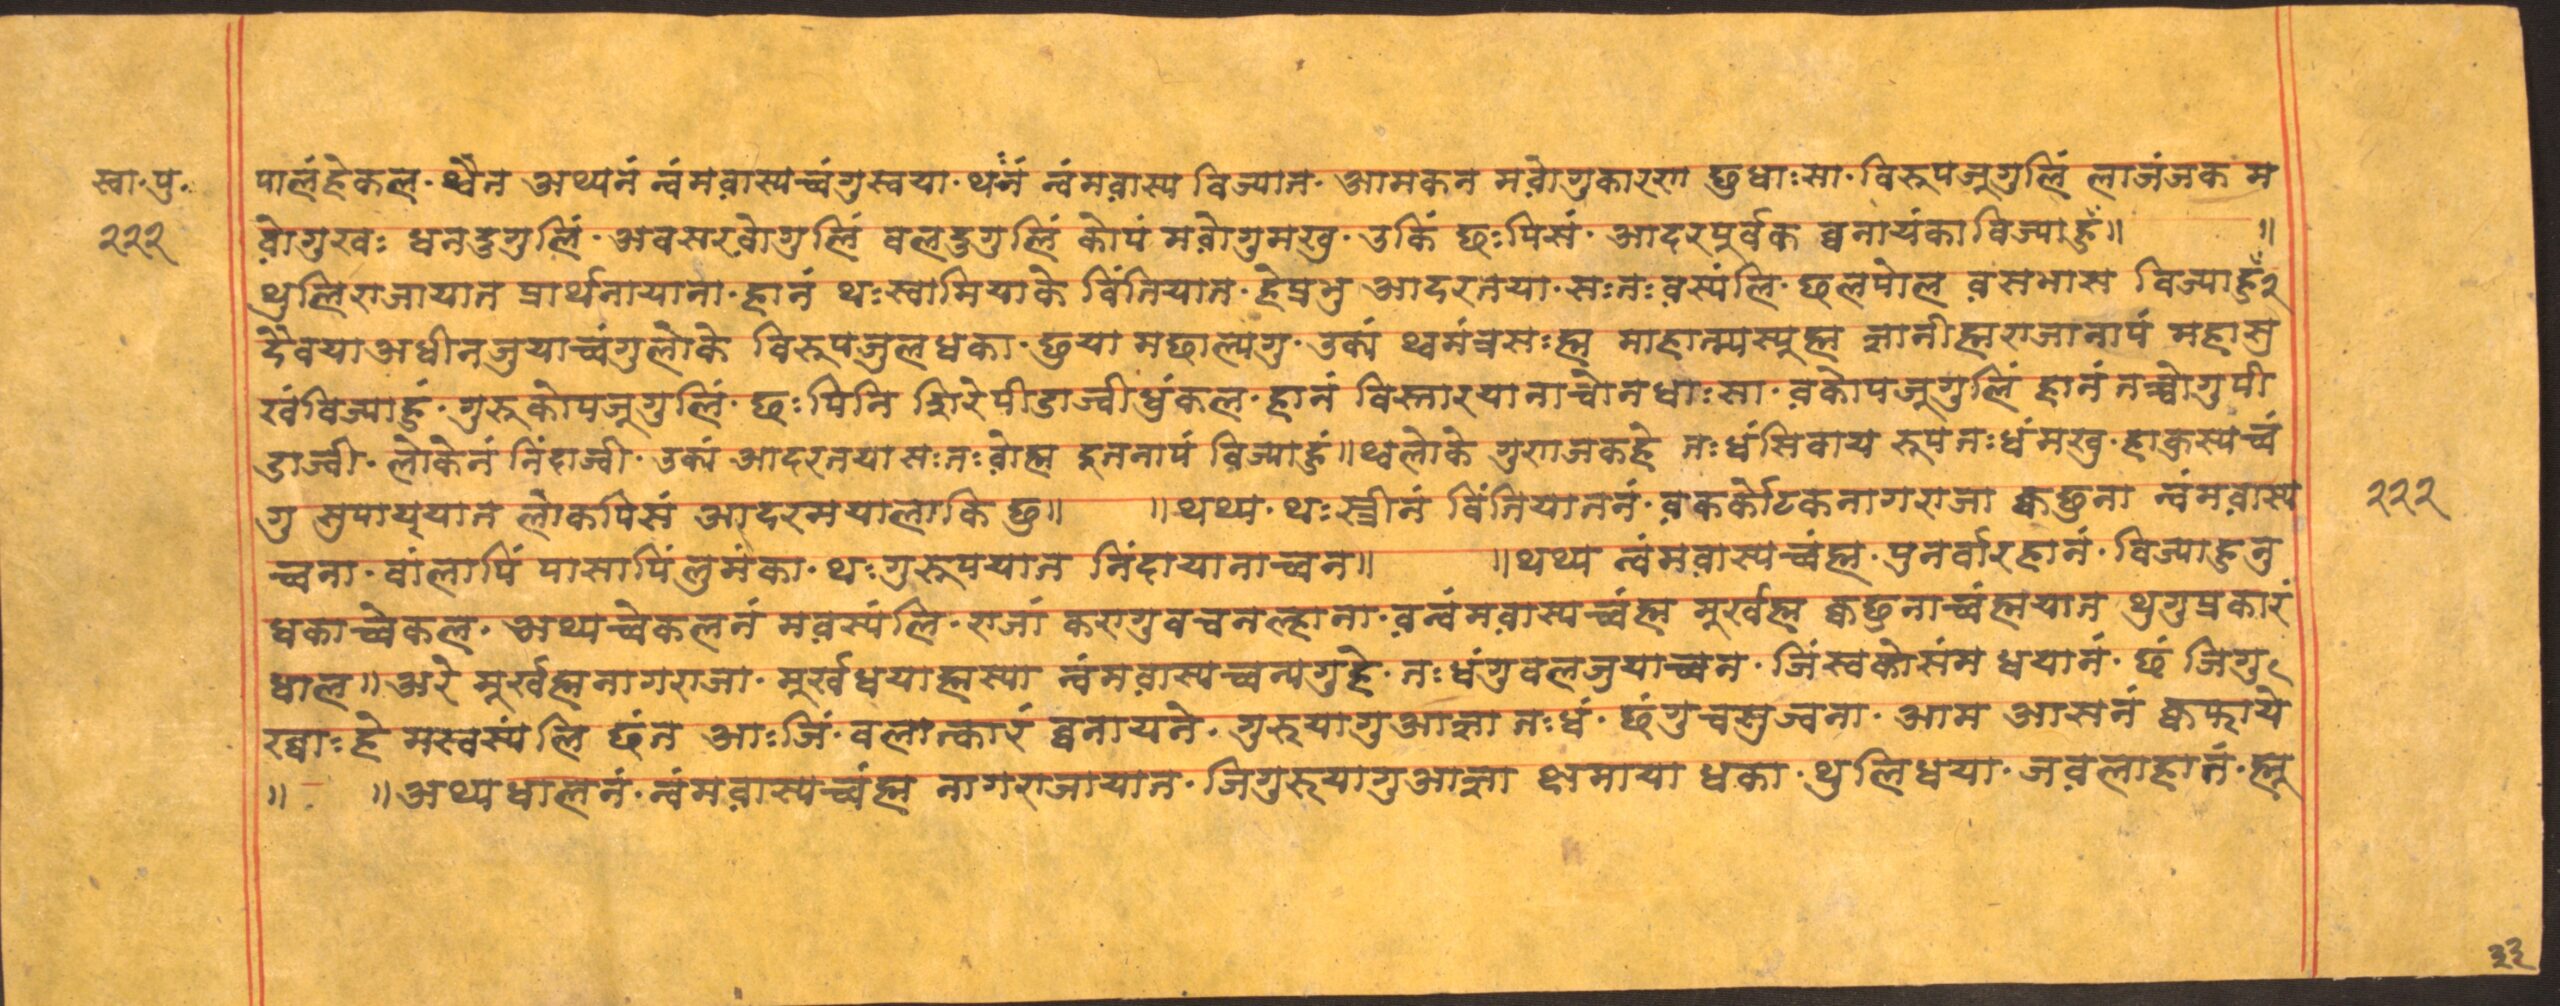 स्वा·पु·
२२२
पालंहेकल· थ्वैन अथ्यनं त्वंमवास्यच्वंगुस्वया· थनं त्वंमवास्य विज्यात· आमकन मवोगुकारण छुधाःसा· विरूपजूगुलिं लाजंजक म
वोगुखः धनदुगुलिं· अवसरवोगुलिं वलदुगुलिं कोपं मवोगुमखु· उकिं छःपिसं· आदरपूर्वक व्वनायंकाविज्याहुँ॥ ॥
थुलिराजायात प्रार्थनायाना· हानं थःस्वामियाके विंतियात· हेप्रभु आदरतया· सःतःवस्यंलि· छलपोल वसभास विज्याहुँ२
दैवयाअधीनजुयाच्वंगुलोके विरूपजुलधका· छुया मछाल्यगु· उक्यं थ्वमंत्रसःह्म माहात्म्यस्यूह्म ज्ञानीह्मराजानापं महासु
खंविज्याहुं· गुरुकोपजूगुलिं· छःपिनि शिरेपीडाज्वीथुंकल· हानं विस्तारयानाच्वोनधाःसा· वकोपजूगुलिं हानं तच्वोगुपी
डाज्वी· लोकेनं निंदाज्वी· उक्यं आदरतयासःतःवोह्म दूतनापं विज्याहुं॥थ्वलोके गुणजकहे तःधंसिवाय रूपतःधंमखु· हाकुस्यच्वं
गु मुपायुयात लोकपिसं आदरमयालाकि छु॥ ॥थथ्य· थःस्त्रीनं विंतियातनं· वकर्कोटकनागराजा क्वछुना त्वंमवास्य २२२
च्वना· वांलापिं पासापिं लुमंका· थःगुरूपयात निंदायानाच्वन॥ ॥थथ्य त्वंमवास्यच्वंह्म· पुनर्वारहानं· विज्याहुनु
धकाच्वेकल· अथ्यच्वेकलनं मवस्यंलि· राजां करागुवचनल्हाना· वत्वंमवास्यच्वंह्म मूर्खह्म क्वछुनाच्वंह्मयात थुगुप्रकारं
धाल॥अरे मूर्खह्मनागराजा· मूर्खधयाह्मस्या त्वंमवास्यच्वन्यगुहे· तःधंगुवलजुयाच्वन· जिंस्वकोसंम धयानं· छं जिगु
खबाःहे मस्वस्यंलि छंत आःजिं· वलात्कारं व्वनायने· गुरुयागुआज्ञा तःधं· छंगुचमुज्वना· आम आसनं क्वफाये
॥ ॥अथ्यधालनं· त्वंमवास्यच्वंह्म नागराजायात· जिगुरुयागुआज्ञा क्षमाया धका· थुलिधया· जवलाहातं· ह्न
३३